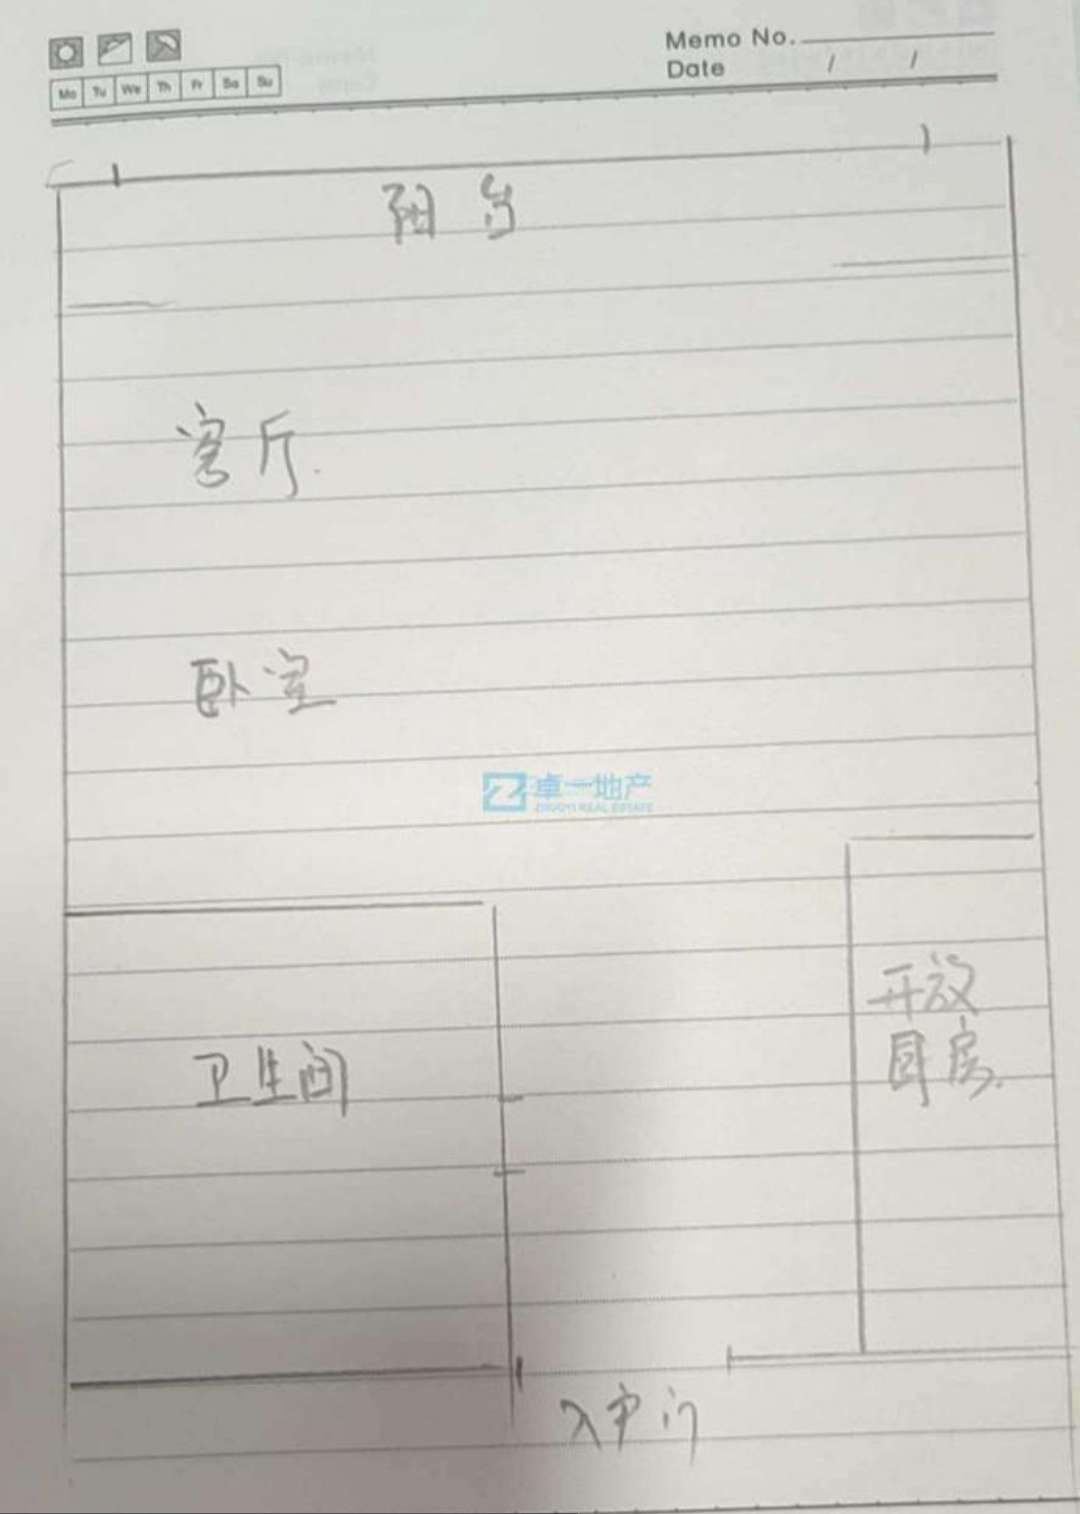 Memo No.
Mo Tu We Th Fr Sa Su
Date / /
阳台
客厅
卧室
卓一地产
ZHUOYI REAL ESTATE
开放
厨房
卫生间
入户门